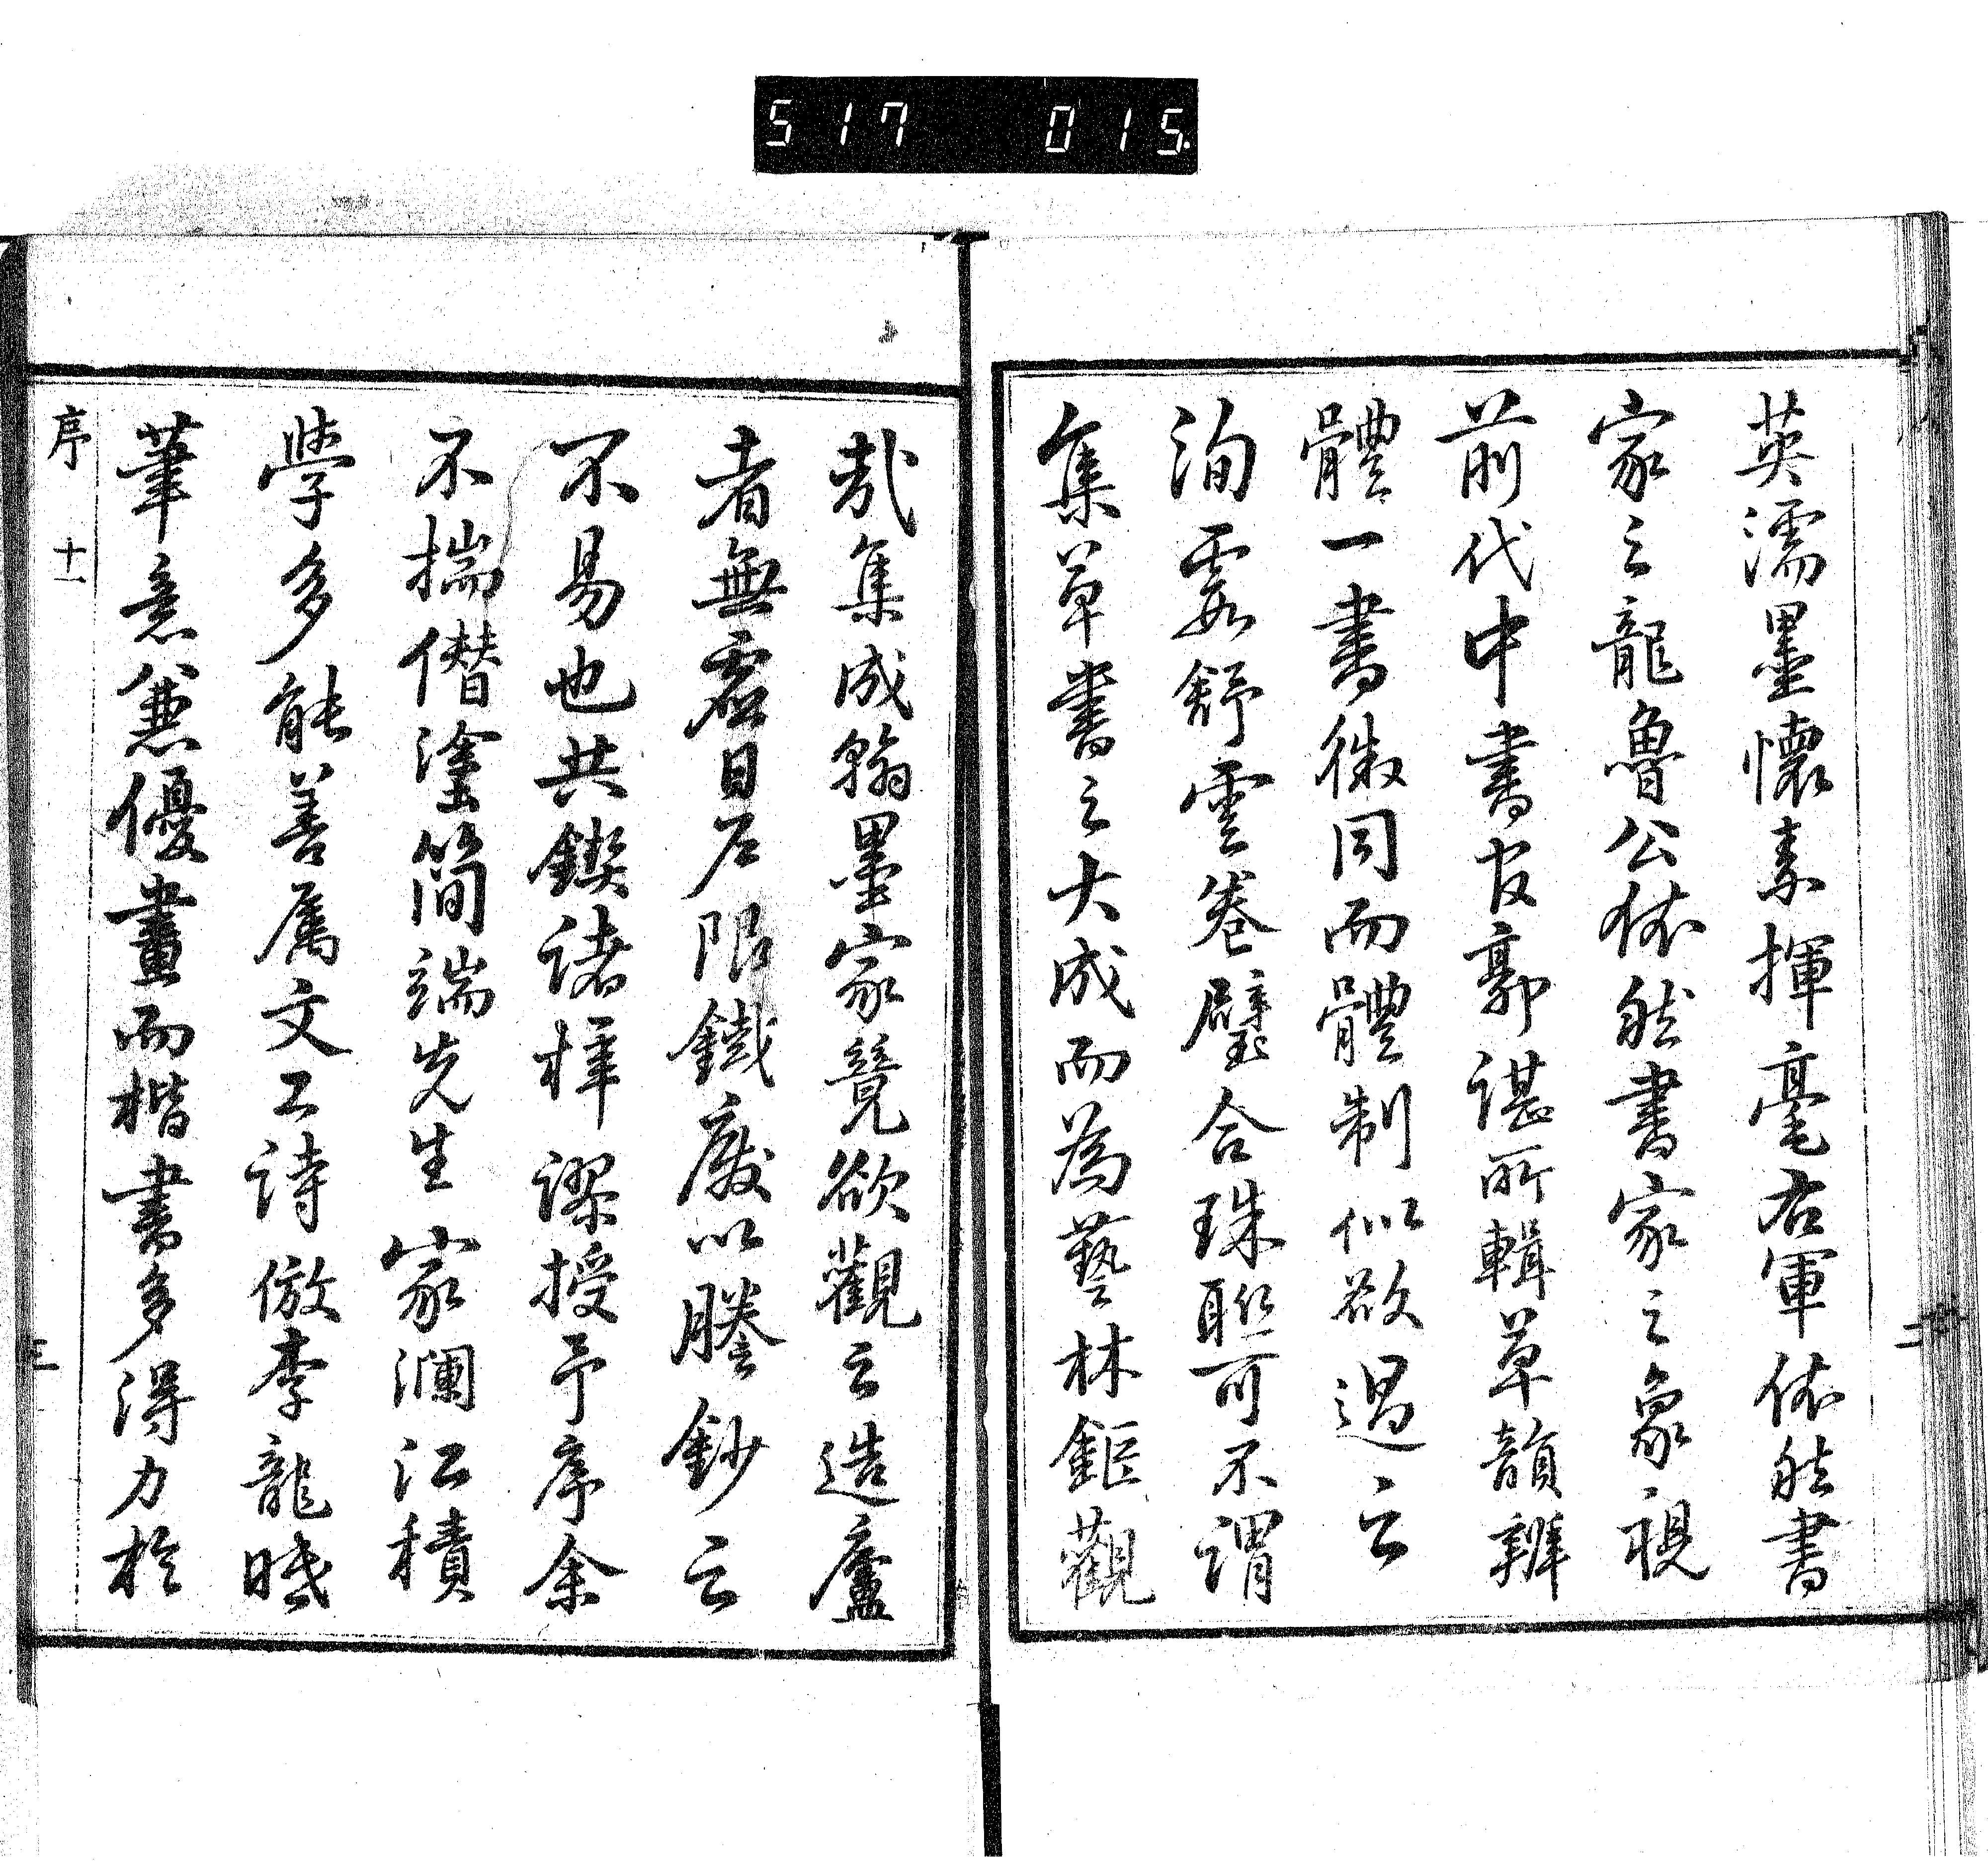 517 015
英濡墨懷素揮毫右軍依然書
家之龍魯公依然書家之象視
前代中書官郭諶所輯草韻辨
體一書微同而體制似欲過之
洵霞舒雲卷璧合珠聯可不謂
集草書之大成而為藝林鉅觀
哉集成翰墨家競欲觀之造廬
者無虛日戶限鐵廢以謄鈔之
不易也共鍥諸梓謬授予序余
不揣僭塗簡端先生家瀾江積
學多能善屬文工詩倣李龍眠
筆意兼優畫而楷書多得力於
序 十一